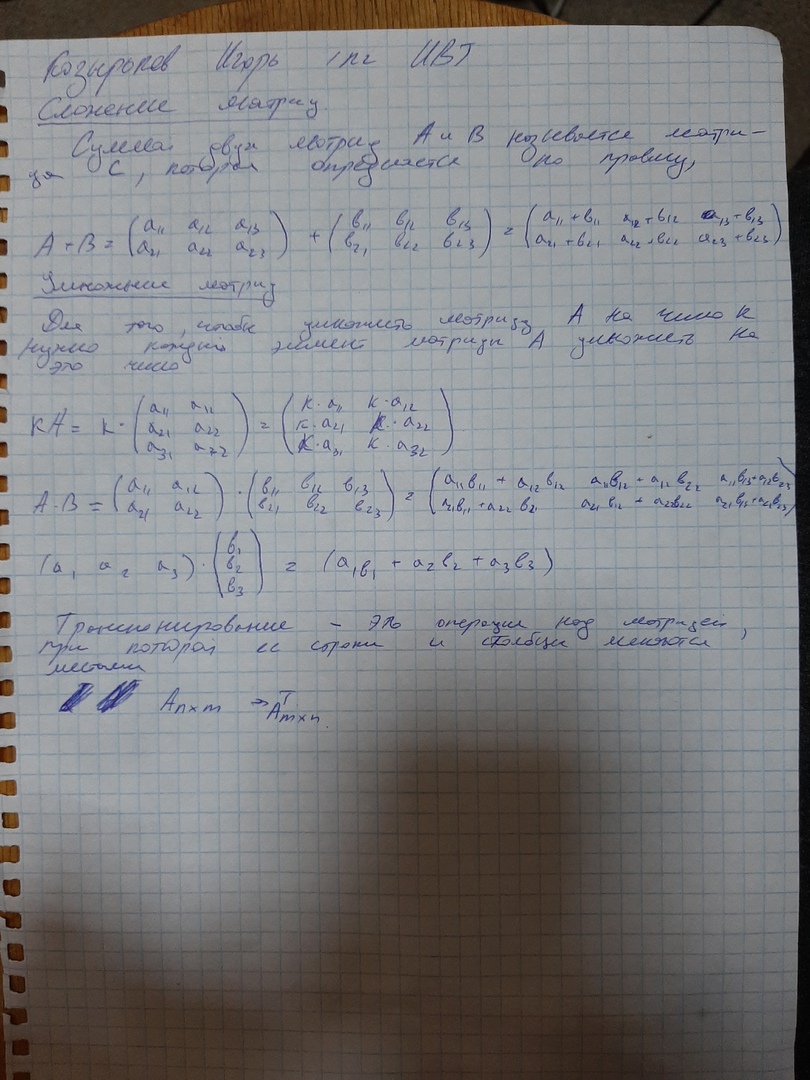 Козырьков Игорь 1пг ИВТ
Сложение матриц.
Суммой двух матриц A и B называется матри-
ца C, которая определяется по правилу,
A + B = (a11 a12 a13 / a21 a22 a23) + (b11 b12 b13 / b21 b22 b23) = (a11 + b11 a12 + b12 a13 + b13 / a21 + b21 a22 + b22 a23 + b23)
Умножение матриц
Для того, чтобы умножить матрицу A на число K
нужно каждый элемент матрицы A умножить на
это число
KA = K · (a11 a12 / a21 a22 / a31 a32) = (K · a11 K · a12 / K · a21 K · a22 / K · a31 K · a32)
A · B = (a11 a12 / a21 a22) · (b11 b12 b13 / b21 b22 b23) = (a11b11 + a12b12 a11b12 + a12b22 a11b13 + a12b23 / a21b11 + a22b21 a21b12 + a22b22 a21b13 + a22b23)
(a1 a2 a3) · (b1 / b2 / b3) = (a1b1 + a2b2 + a3b3)
Транспонирование – это операция над матрицей,
при которой ее строки и столбцы меняются
местами
An×m → A^T m×n.